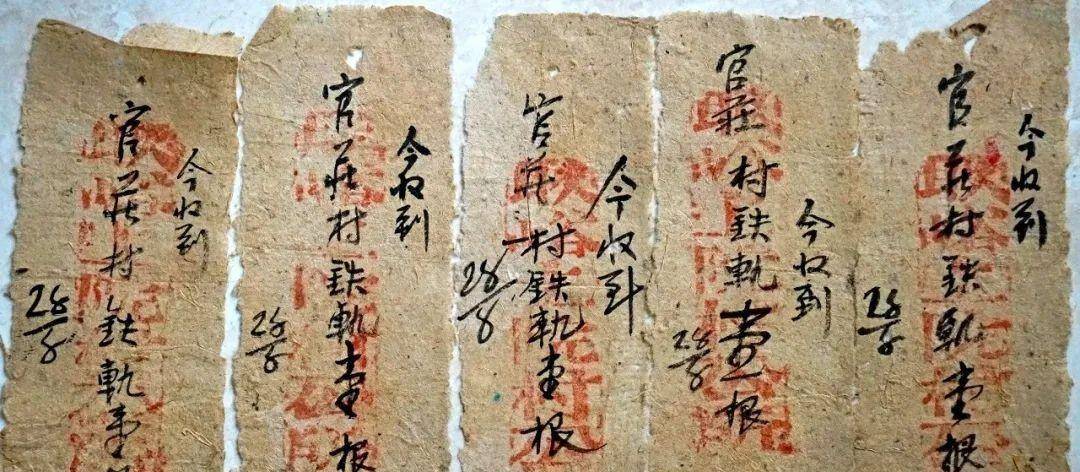 今收到
官莊村鉄軌壹根
28/8
今收到
官莊村鉄軌壹根
28/8
今收到
官莊村鉄軌壹根
28/8
今收到
官莊村鉄軌壹根
28/8
今收到
官莊村鉄軌壹
28/8